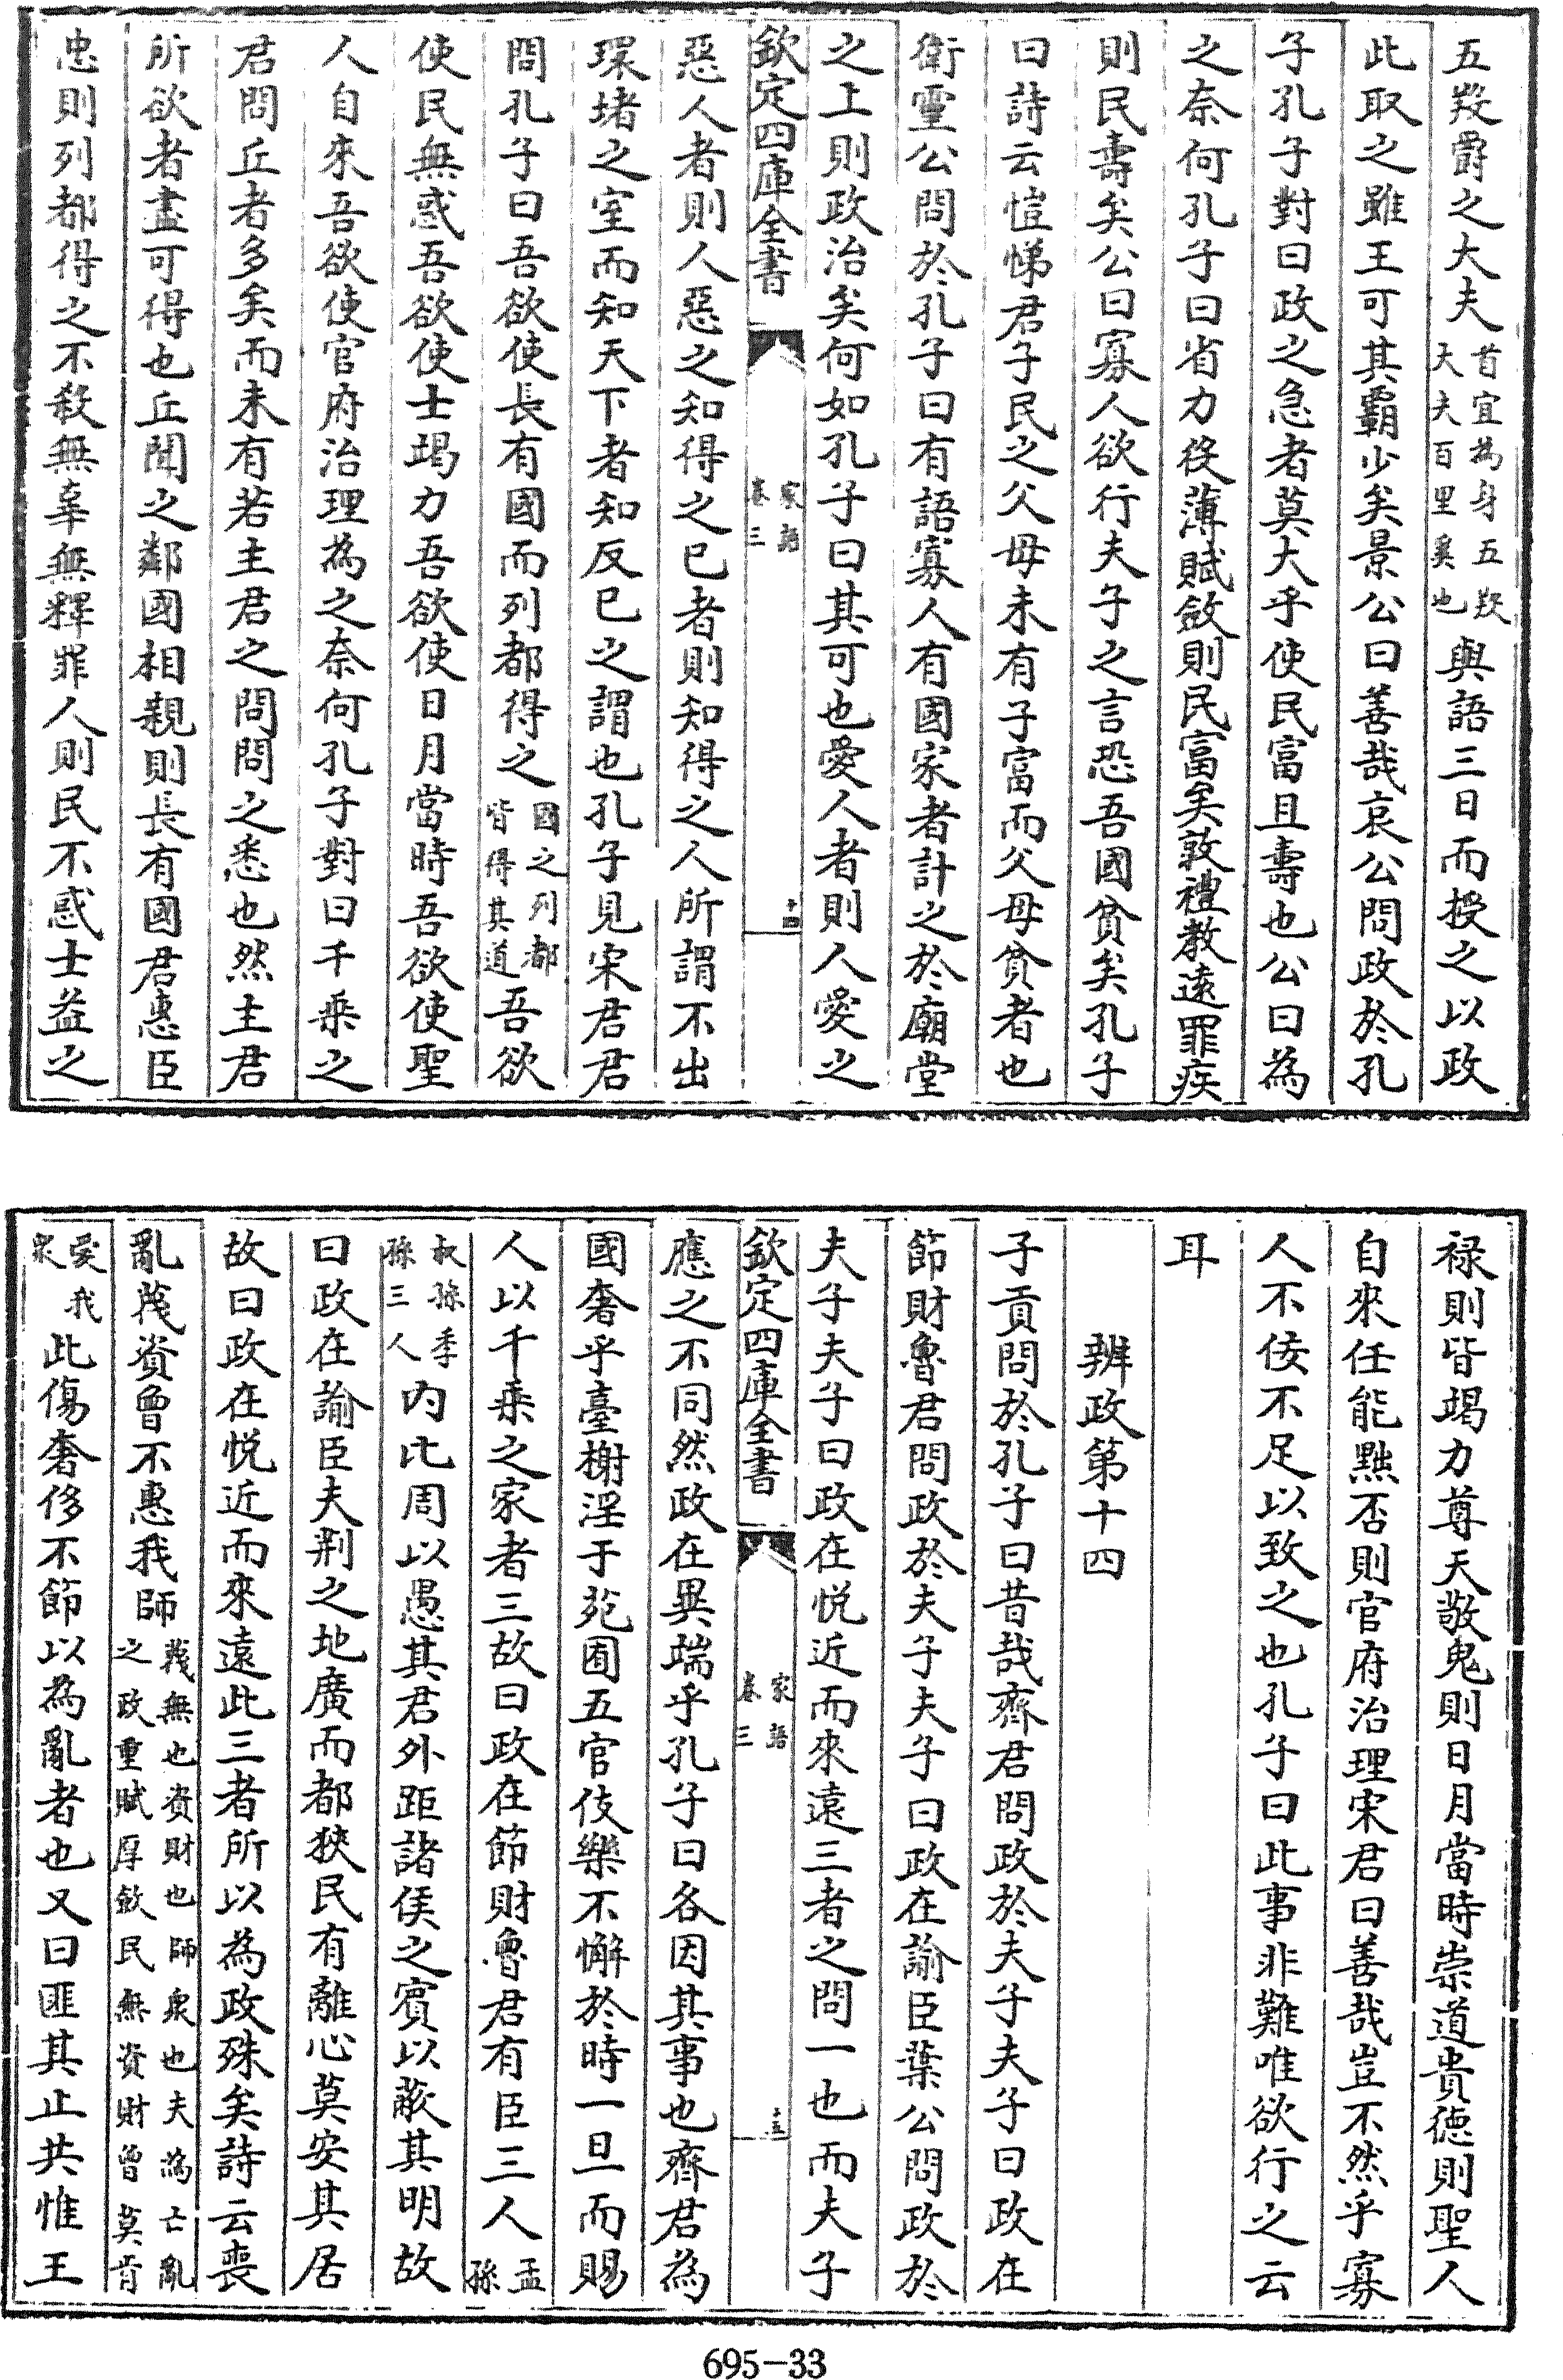 五羖爵之大夫首宜為身五羖大夫百里奚也與語三日而授之以政
此取之雖王可其霸少矣景公曰善哉哀公問政於孔
子孔子對曰政之急者莫大乎使民富且壽也公曰為
之奈何孔子曰省力役薄賦斂則民富矣敦禮教遠罪疾
則民壽矣公曰寡人欲行夫子之言恐吾國貧矣孔子
曰詩云愷悌君子民之父母未有子富而父母貧者也
衛靈公問於孔子曰有語寡人有國家者計之於廟堂
之上則政治矣何如孔子曰其可也愛人者則人愛之
欽定四庫全書 家語卷三 十四
惡人者則人惡之知得之已者則知得之人所謂不出
環堵之室而知天下者知反已之謂也孔子見宋君君
問孔子曰吾欲使長有國而列都得之國之列都皆得其道吾欲
使民無惑吾欲使士竭力吾欲使日月當時吾欲使聖
人自來吾欲使官府治理為之奈何孔子對曰千乘之
君問丘者多矣而未有若主君之問問之悉也然主君
所欲者盡可得也丘聞之鄰國相親則長有國君惠臣
忠則列都得之不殺無辜無釋罪人則民不惑士益之
祿則皆竭力尊天敬鬼則日月當時崇道貴德則聖人
自來任能黜否則官府治理宋君曰善哉豈不然乎寡
人不佞不足以致之也孔子曰此事非難唯欲行之云
耳
辨政第十四
子貢問於孔子曰昔者齊君問政於夫子夫子曰政在
節財魯君問政於夫子夫子曰政在諭臣葉公問政於
夫子夫子曰政在悅近而來遠三者之問一也而夫子
欽定四庫全書 家語卷三 十五
應之不同然政在異端乎孔子曰各因其事也齊君為
國奢乎臺榭淫于苑囿五官伎樂不懈於時一旦而賜
人以千乘之家者三故曰政在節財魯君有臣三人孟孫
叔孫季孫三人內比周以愚其君外距諸侯之賓以蔽其明故
曰政在諭臣夫荆之地廣而都狹民有離心莫安其居
故曰政在悅近而來遠此三者所以為政殊矣詩云喪
亂蔑資曾不惠我師蔑無也資財也師眾也夫為亡亂之政重賦厚斂民無資財曾莫肯
愛我眾此傷奢侈不節以為亂者也又曰匪其止共惟王
695-33